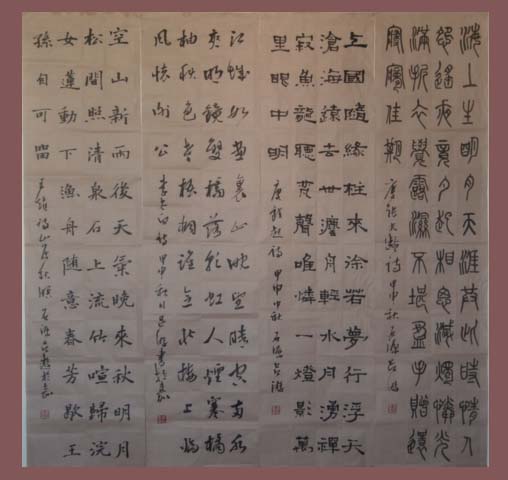 海上生明月天涯共此時情人
怨遙夜竟夕起相思滅燭憐光
滿披衣覺露濕不堪盈手贈還
寢夢佳期 唐張九齡詩 甲申秋 石源
上國隨緣住來途若夢行浮天
滄海遠去世灋舟輕水月通禪
寂魚龍聽梵聲唯憐一燈影萬
里眼中明 唐錢起詩 甲申中秋 石源
江城如畫裏山晚望晴空兩水
夾明鏡雙橋落彩虹人煙寒橘
柚秋色老梧桐誰念北樓上臨
風懷謝公 李太白詩 甲申秋日
空山新雨後天氣晚來秋明月
松間照清泉石上流竹喧歸浣
女蓮動下漁舟隨意春芳歇王
孫自可留 王維詩山居秋暝 石源